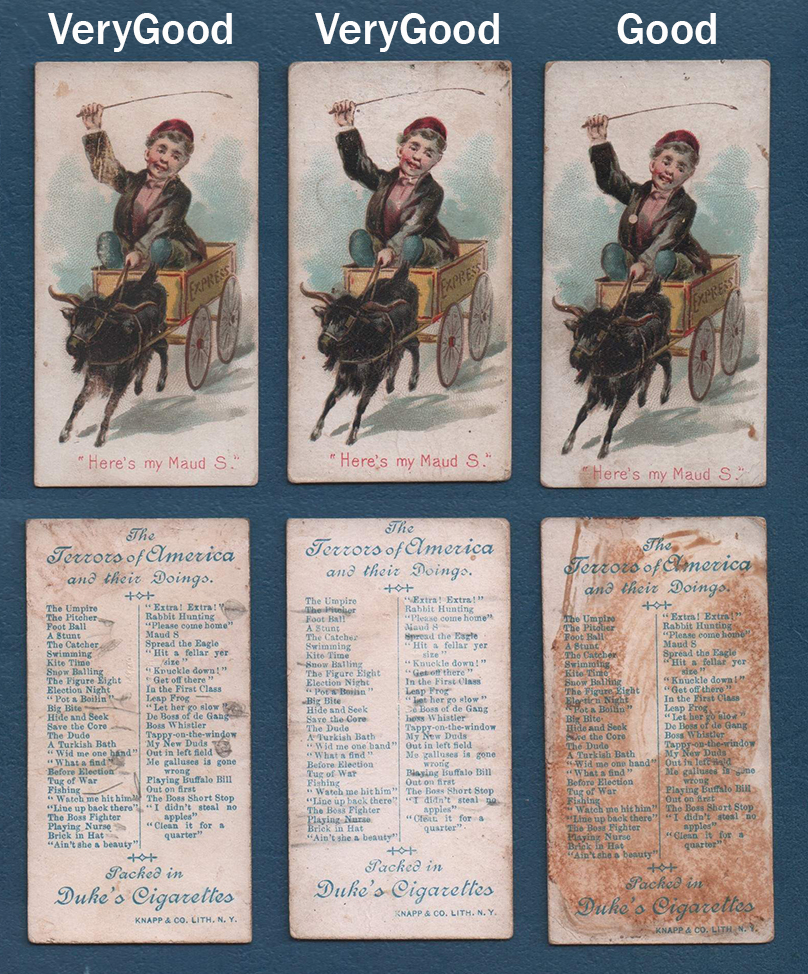 VeryGood
VeryGood
Good
EXPRESS
"Here's my Maud S."
EXPRESS
"Here's my Maud S."
EXPRESS
"Here's my Maud S."
The
Terrors of America
and their Doings.
The Umpire
The Pitcher
Foot Ball
A Stunt
The Catcher
Swimming
Kite Time
Snow Balling
The Figure Eight
Election Night
"Pot a Boilin"
Big Bite
Hide and Seek
Save the Core
The Dude
A Turkish Bath
"Wid me one hand"
"What a find"
Before Election
Tug of War
Fishing
"Watch me hit him"
"Line up back there"
The Boss Fighter
Playing Nurse
Brick in Hat
"Ain't she a beauty"
"Extra! Extra!"
Rabbit Hunting
"Please come home"
Maud S
Spread the Eagle
"Hit a fellar yer
size"
"Knuckle down!"
"Get off there"
In the First Class
Leap Frog
"Let her go slow"
De Boss of de Gang
Boss Whistler
Tappy-on-the-window
My New Duds
Out in left field
Me galluses is gone
wrong
Playing Buffalo Bill
Out on first
The Boss Short Stop
"I didn't steal no
apples"
"Clean it for a
quarter"
Packed in
Duke's Cigarettes
KNAPP & CO. LITH. N. Y.
The
Terrors of America
and their Doings.
The Umpire
The Pitcher
Foot Ball
A Stunt
The Catcher
Swimming
Kite Time
Snow Balling
The Figure Eight
Election Night
"Pot a Boilin"
Big Bite
Hide and Seek
Save the Core
The Dude
A Turkish Bath
"Wid me one hand"
"What a find"
Before Election
Tug of War
Fishing
"Watch me hit him"
"Line up back there"
The Boss Fighter
Playing Nurse
Brick in Hat
"Ain't she a beauty"
"Extra! Extra!"
Rabbit Hunting
"Please come home"
Maud S
Spread the Eagle
"Hit a fellar yer
size"
"Knuckle down!"
"Get off there"
In the First Class
Leap Frog
"Let her go slow"
De Boss of de Gang
Boss Whistler
Tappy-on-the-window
My New Duds
Out in left field
Me galluses is gone
wrong
Playing Buffalo Bill
Out on first
The Boss Short Stop
"I didn't steal no
apples"
"Clean it for a
quarter"
Packed in
Duke's Cigarettes
KNAPP & CO. LITH. N. Y.
The
Terrors of America
and their Doings.
The Umpire
The Pitcher
Foot Ball
A Stunt
The Catcher
Swimming
Kite Time
Snow Balling
The Figure Eight
Election Night
"Pot a Boilin"
Big Bite
Hide and Seek
Save the Core
The Dude
A Turkish Bath
"Wid me one hand"
"What a find"
Before Election
Tug of War
Fishing
"Watch me hit him"
"Line up back there"
The Boss Fighter
Playing Nurse
Brick in Hat
"Ain't she a beauty"
"Extra! Extra!"
Rabbit Hunting
"Please come home"
Maud S
Spread the Eagle
"Hit a fellar yer
size"
"Knuckle down!"
"Get off there"
In the First Class
Leap Frog
"Let her go slow"
De Boss of de Gang
Boss Whistler
Tappy-on-the-window
My New Duds
Out in left field
Me galluses is gone
wrong
Playing Buffalo Bill
Out on first
The Boss Short Stop
"I didn't steal no
apples"
"Clean it for a
quarter"
Packed in
Duke's Cigarettes
KNAPP & CO. LITH. N. Y.